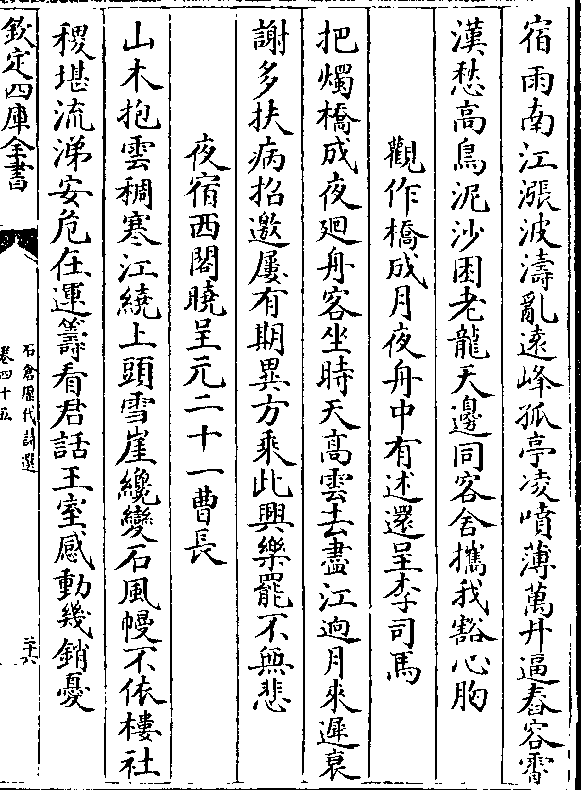 宿雨南江漲波濤亂遠峰孤亭凌噴薄萬井逼舂容霄
漢愁高鳥泥沙困老龍天邊同客舍攜我豁心胸
觀作橋成月夜舟中有述還呈李司馬
把燭橋成夜廻舟客坐時天高雲去盡江逈月來遲衰
謝多扶病招邀屢有期異方乘此興樂罷不無悲
夜宿西閣曉呈元二十一曹長
山木抱雲稠寒江繞上頭雪崖纔變石風幔不依樓社
稷堪流涕安危在運籌看君話王室感動幾銷憂
欽定四庫全書
石倉歷代詩選
卷四十五
二十六